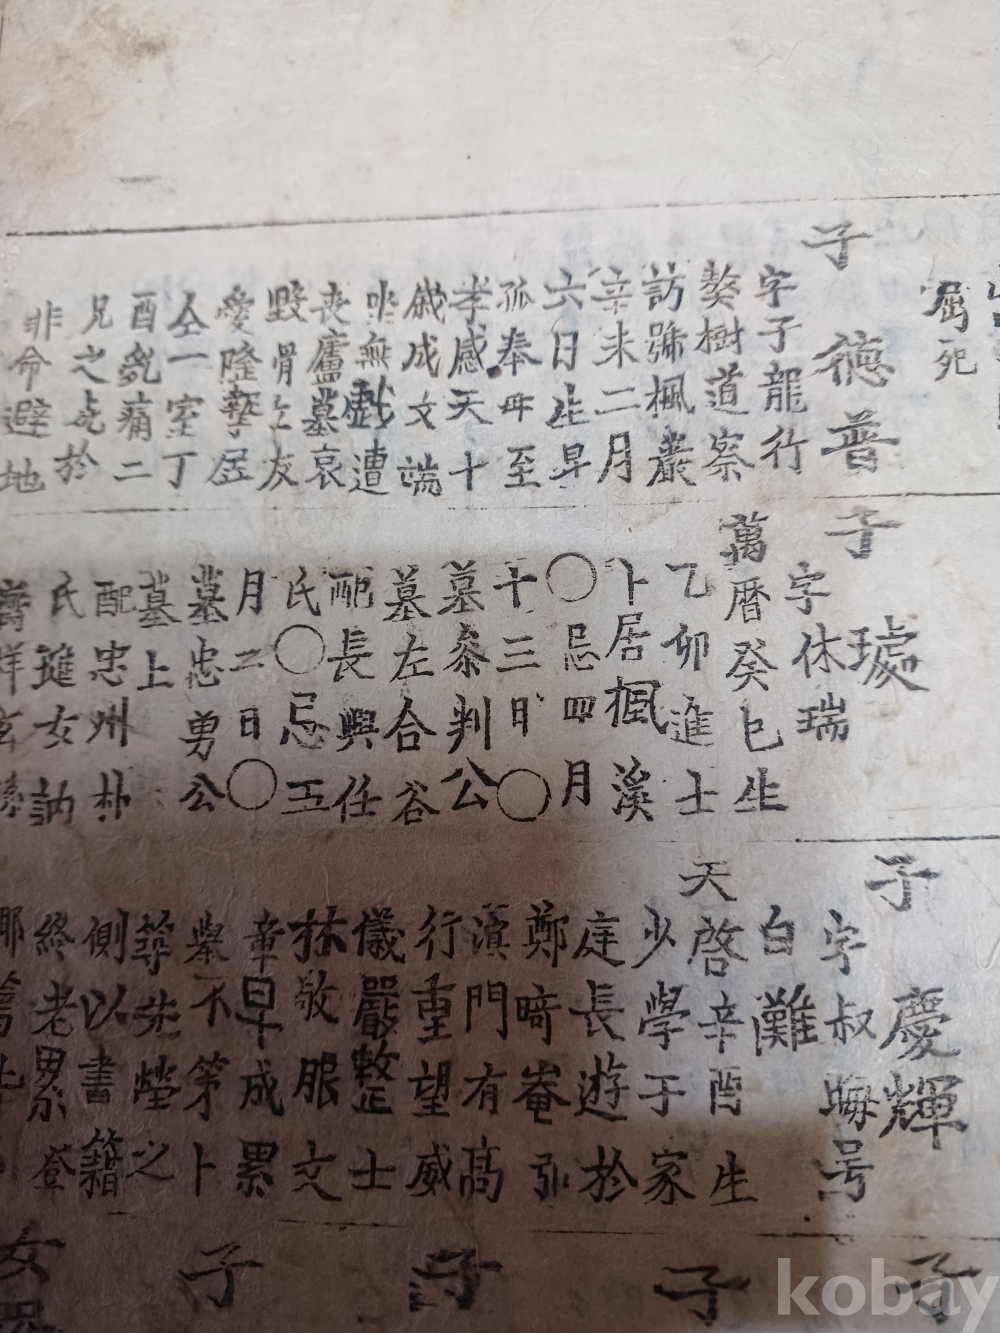 屈死
子德普
字子龍行
獒樹道察
訪號楓巖
辛未二月
六日生早
孤奉母至
孝感天十
歲成文端
坐無戱遭
喪廬墓哀
毁骨立友
愛隆篤居
仝一室丁
酉乱痛二
兄之死於
非命避地
子璩
字休瑞
萬曆癸巳生
乙卯進士
卜居楓溪
○忌四月
十三日○
墓叅判公
墓左合谷
配長興任
氏○忌五
月二日○
墓忠勇公
墓上
配忠州朴
氏璡女訥
齋祥玄孫
子慶輝
字叔晦号
白灘
天啓辛酉生
少學于家
庭長遊於
鄭畸庵弘
濵門有高
行重望威
儀嚴整士
林敬服文
章早成累
擧不第卜
築先塋之
側以書籍
終老累登
子
子
子
子
女
kobay